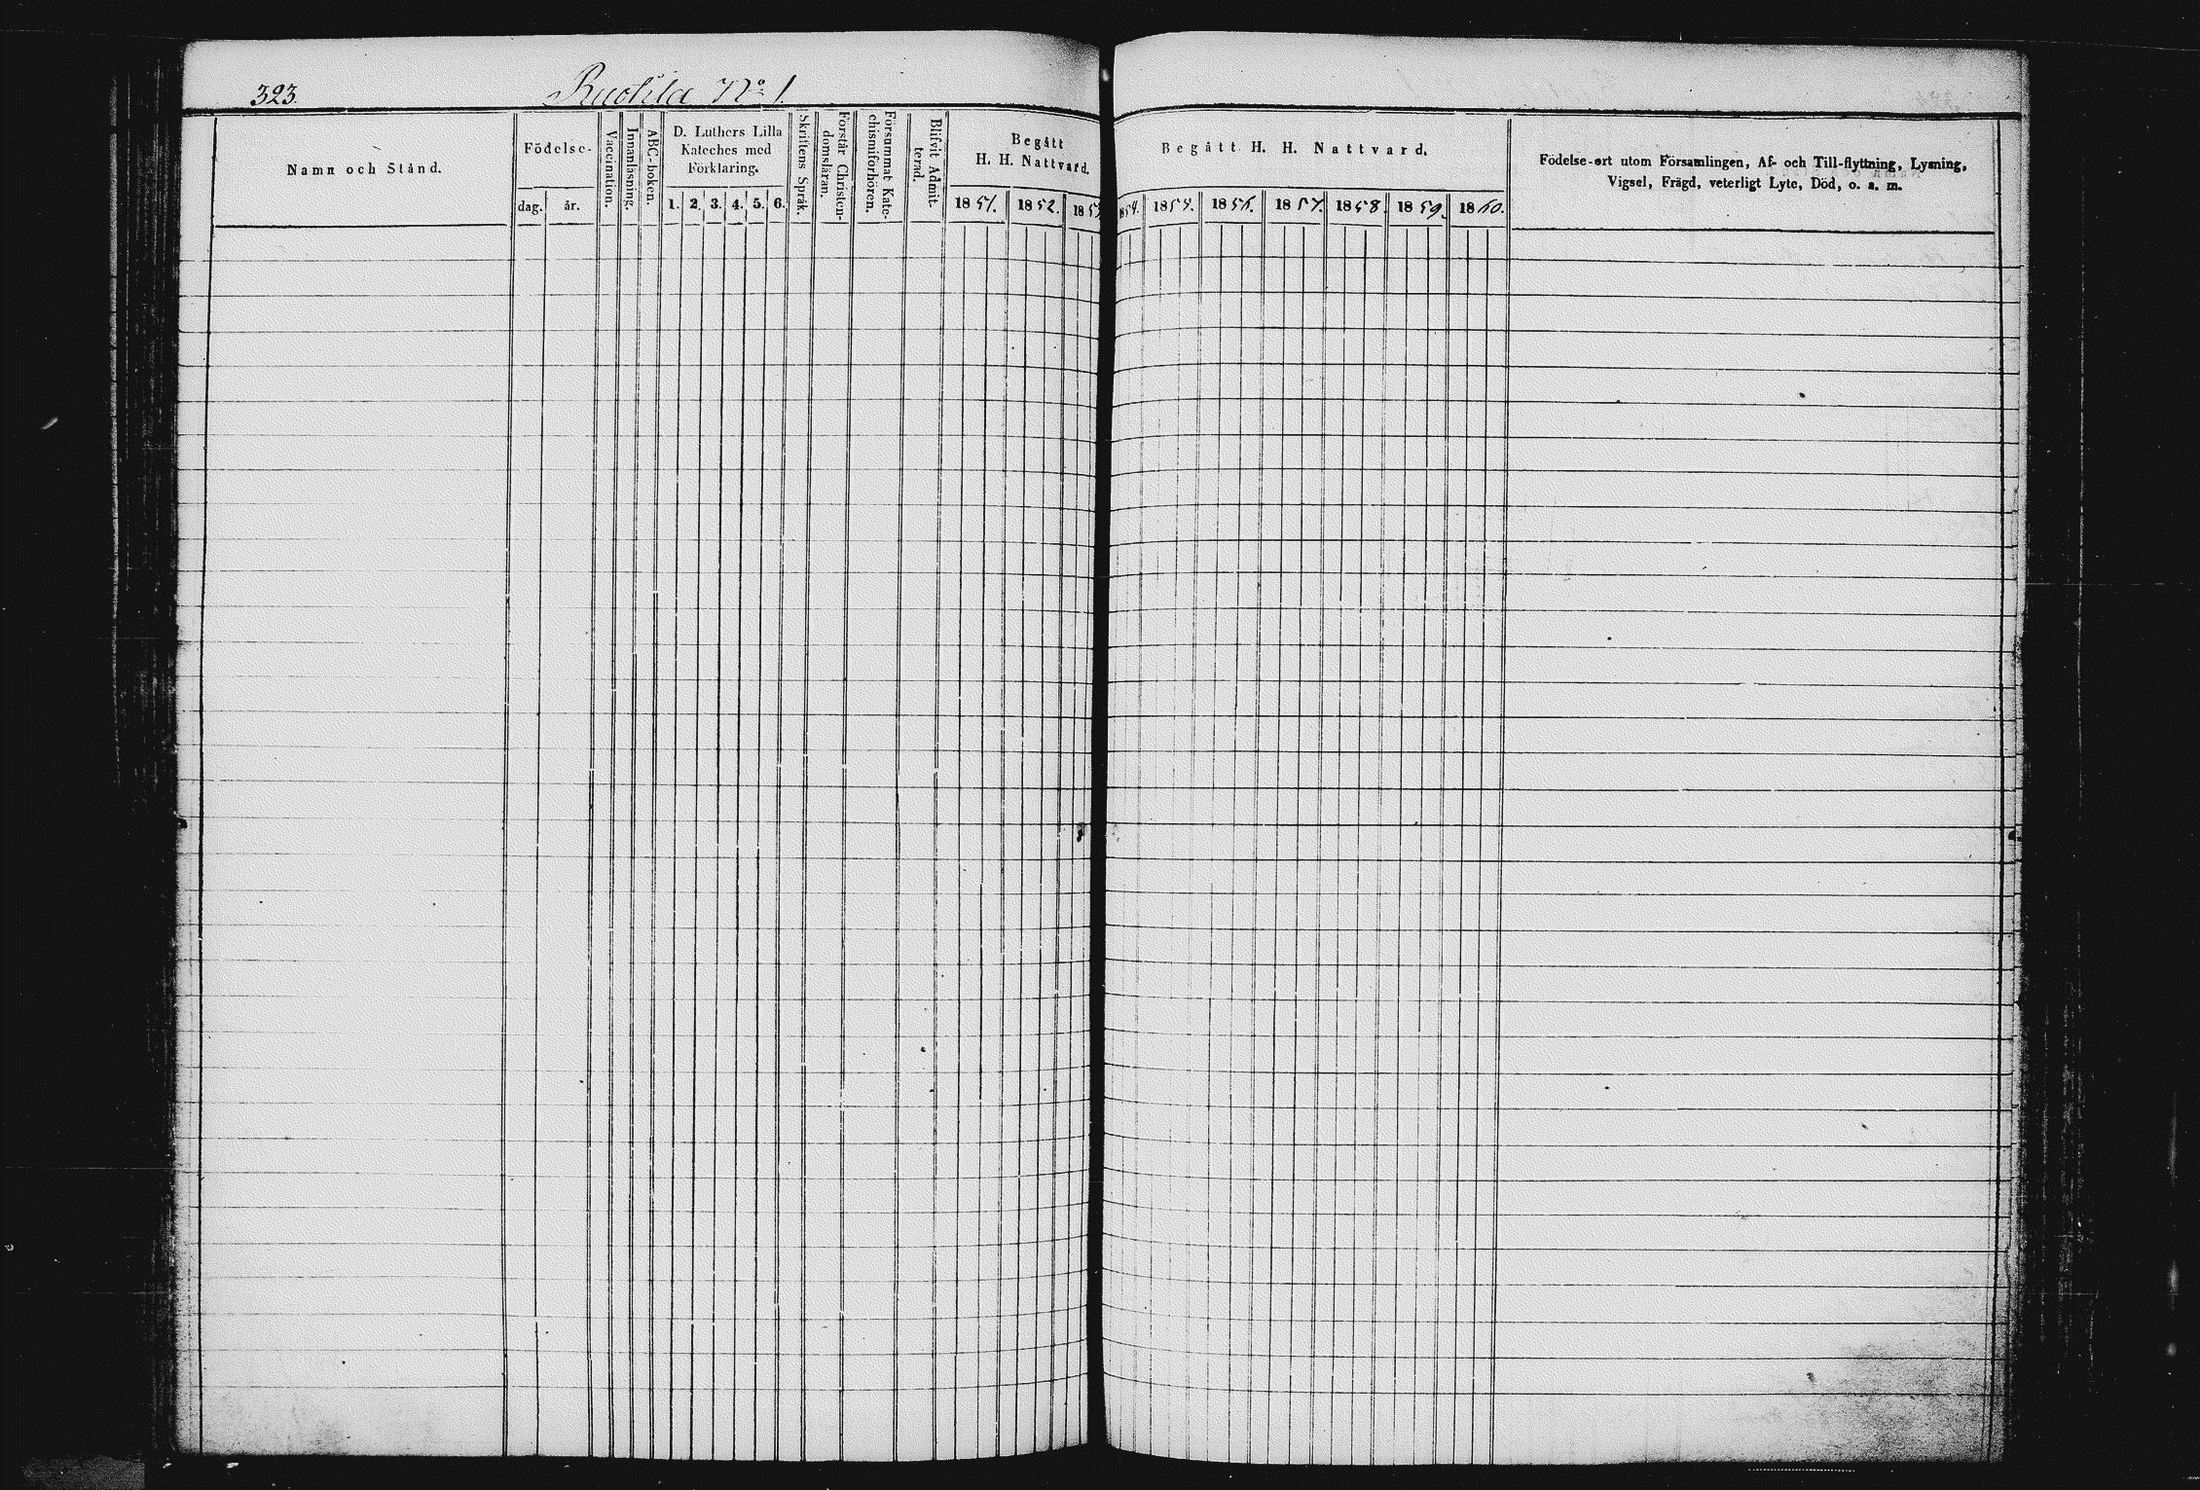 323. Ruohila No 1.
Namn och Stånd.
Födelse-
dag. år.
Vaccination.
Innanläsning.
ABC-boken.
D. Luthers Lilla
Kateches med
Förklaring.
1. 2. 3. 4. 5. 6.
Skriftens Språk.
Förstår Christen-
domsläran.
Försummat Kate-
chismiförhören.
Blifvit Admit-
terad.
Begått
H. H. Nattvard.
1851. 1852. 1853
Begått H. H. Nattvard.
54. 1855. 1856. 1857. 1858. 1859. 1860.
Födelse-ort utom Församlingen, Af- och Till-flyttning, Lysning,
Vigsel, Frägd, veterligt Lyte, Död, o. s. m.